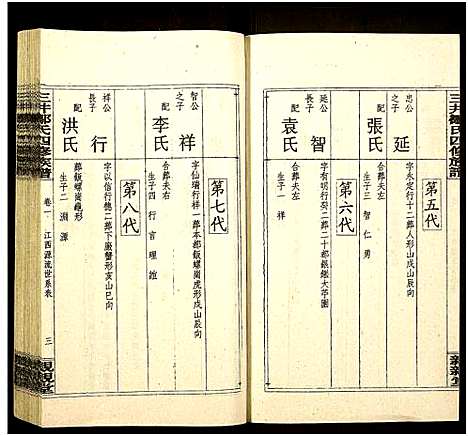 三井鄒氏四修族譜
第五代
忠公
之子
延
字永定行十二葬人形山戌山辰向
配
張氏
合葬夫左
生子三 智 仁 勇
第六代
延公
長子
智
配
袁氏
合葬夫右
生子一 祥
第七代
智公
之子
祥
字仙瑞行祥一葬本都鈑螺崗虎形戌山辰向
配
李氏
合葬夫右
生子四 行 言 理
第八代
祥公
長子
行
字以信行德二葬下嚴蟹形亥山巳向
配
洪氏
葬鈑螺崗龜形
生子二 淵 源
三井鄒氏四修族譜
卷一
江西源流世系表
三
親親堂